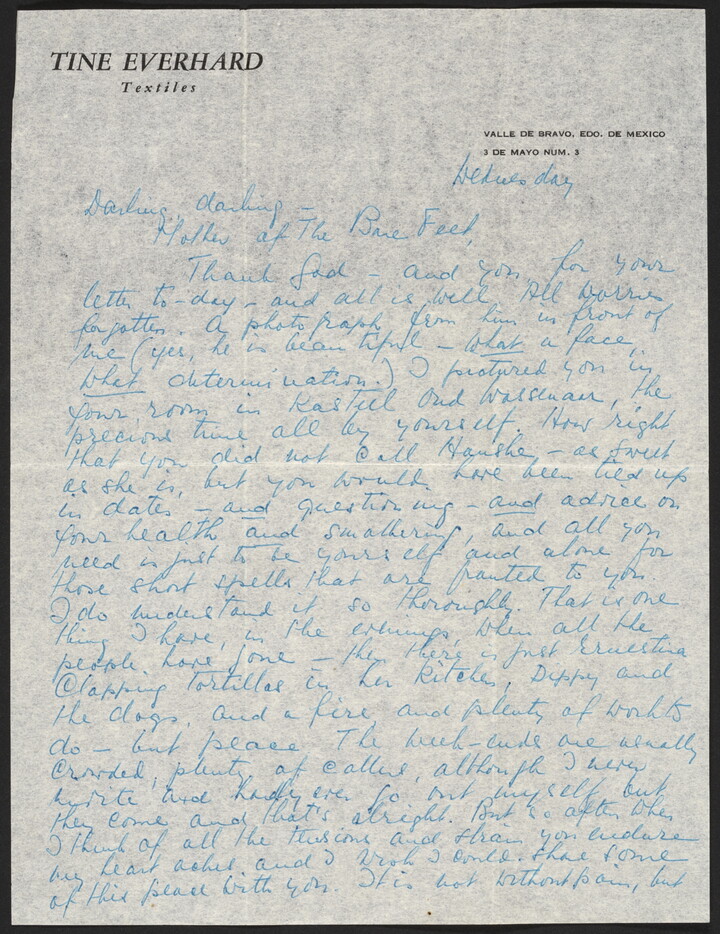 TINE EVERHARD
Textiles
VALLE DE BRAVO, EDO. DE MEXICO
3 DE MAYO NUM. 3
Wednesday
Darling, darling –
Mother of The Bare Feet,
Thank God – and you, for your
letter to-day – and all is well. All worries
forgotten. A photograph from him in front of
me (yes, he is beautiful – what a face,
what determination.) I pictured you in
your room in Kasteel Oud Wassenaar, the
precious time all by yourself. How right
that you did not call Hanshe, – as sweet
as she is, but you would have been tied up
in dates – and questioning – and advice on
your health and smothering, and all you
need is just to be yourself and alone for
those short spells that are granted to you.
I do understand it so thoroughly. That is one
thing I have, in the evenings, when all the
people have gone – then there is just Ernestina
clapping tortillas in her kitchen, Dippy and
the dogs, and a fire and plenty of work to
do – but peace. The week-ends are usually
crowded, plenty of callers, although I never
invite and hardly ever go out myself, but
they come and that's alright. But so often when
I think of all the tensions and strain you endure
my heart aches and I wish I could share some
of this peace with you. It is not without pain, but